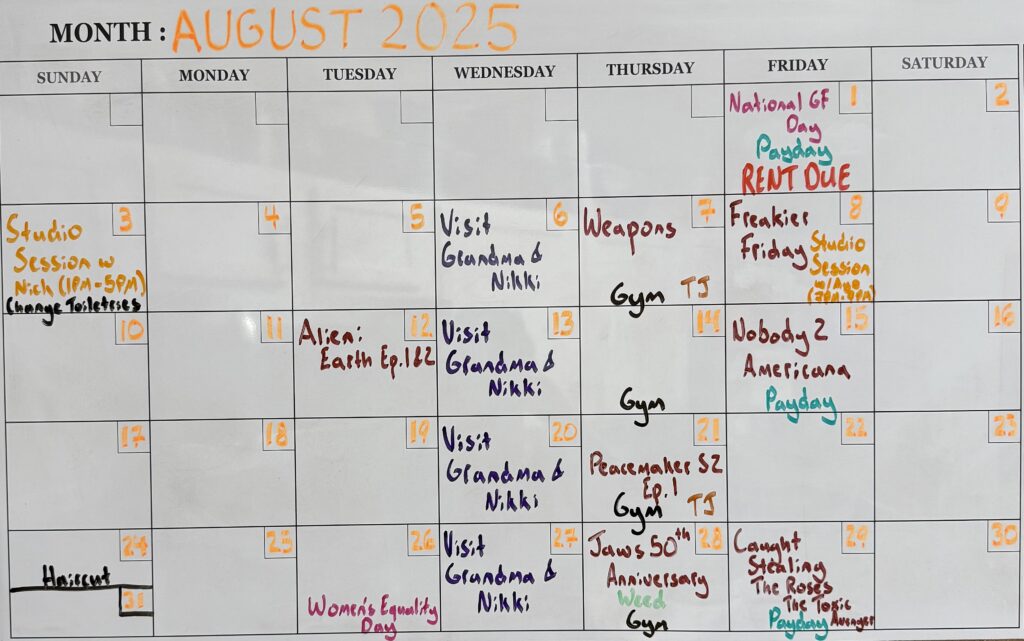 MONTH : AUGUST 2025
SUNDAY MONDAY TUESDAY WEDNESDAY THURSDAY FRIDAY SATURDAY
1
National GF
Day
Payday
RENT DUE
2
3
Studio
Session w
Nick (1PM-5PM)
Change Toiletries
4
5
6
Visit
Grandma &
Nikki
7
Weapons
Gym TJ
8
Freakier
Friday
Studio
Session
9
10
11
12
Alien:
Earth Ep.1&2
13
Visit
Grandma &
Nikki
14
Gym
15
Nobody 2
Americana
Payday
16
17
18
19
20
Visit
Grandma &
Nikki
21
Peacemaker S2
Ep.1
Gym TJ
22
23
24
Haircut
31
25
26
Women's Equality
Day
27
Visit
Grandma &
Nikki
28
Jaws 50th
Anniversary
Weed
Gym
29
Caught
Stealing
The Roses
The Toxic
Avenger
Payday
30